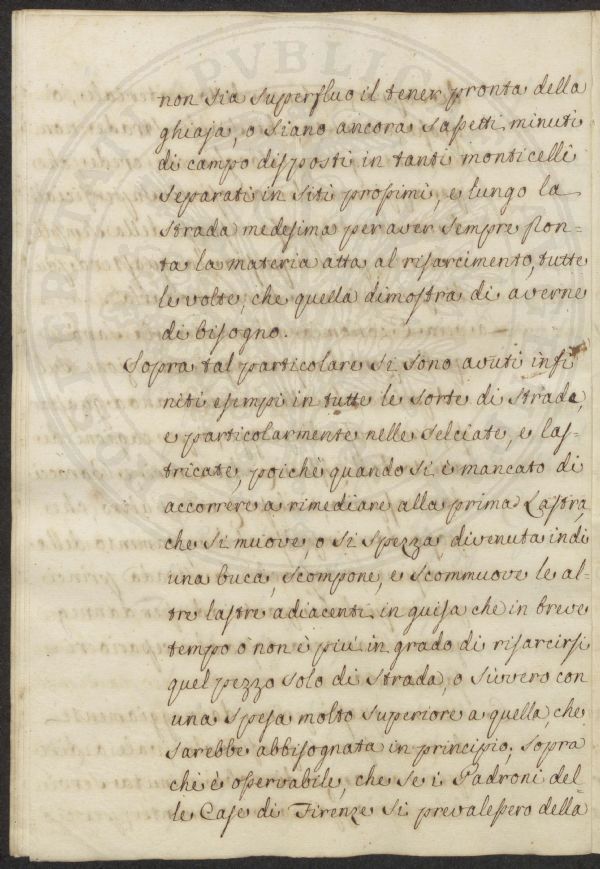 non sia superfluo il tener pronta della
ghiaja, o siano ancora sassetti minuti
di campo disposti in tanti monticelli
separati in siti prossimi, e lungo la
strada medesima per aver sempre pron-
ta la materia atta al risarcimento, tutte
le volte, che quella dimostra di averne
di bisogno.
Sopra tal particolare si sono avuti infi
niti esempi in tutte le sorte di strade,
e particolarmente nelle selciate, e las-
tricate, poichè quando si è mancato di
accorrere a rimediare alla prima Lastra,
che si muove, o si spezza divenuta indi
una buca, scompone, e scommuove le al-
tre lastre adiacenti in guisa che in breve
tempo o non è più in grado di risarcirsi
quel pezzo solo di strada, o sivvero con
una spesa molto superiore a quella che
sarebbe abbisognata in principio; sopra
chè è osservabile, che se i Padroni del-
le Case di Firenze si prevalessero della